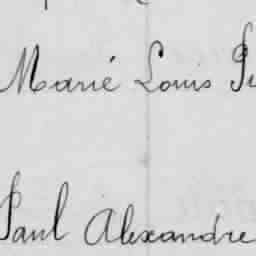 Marié Louis
Paul Alexandre